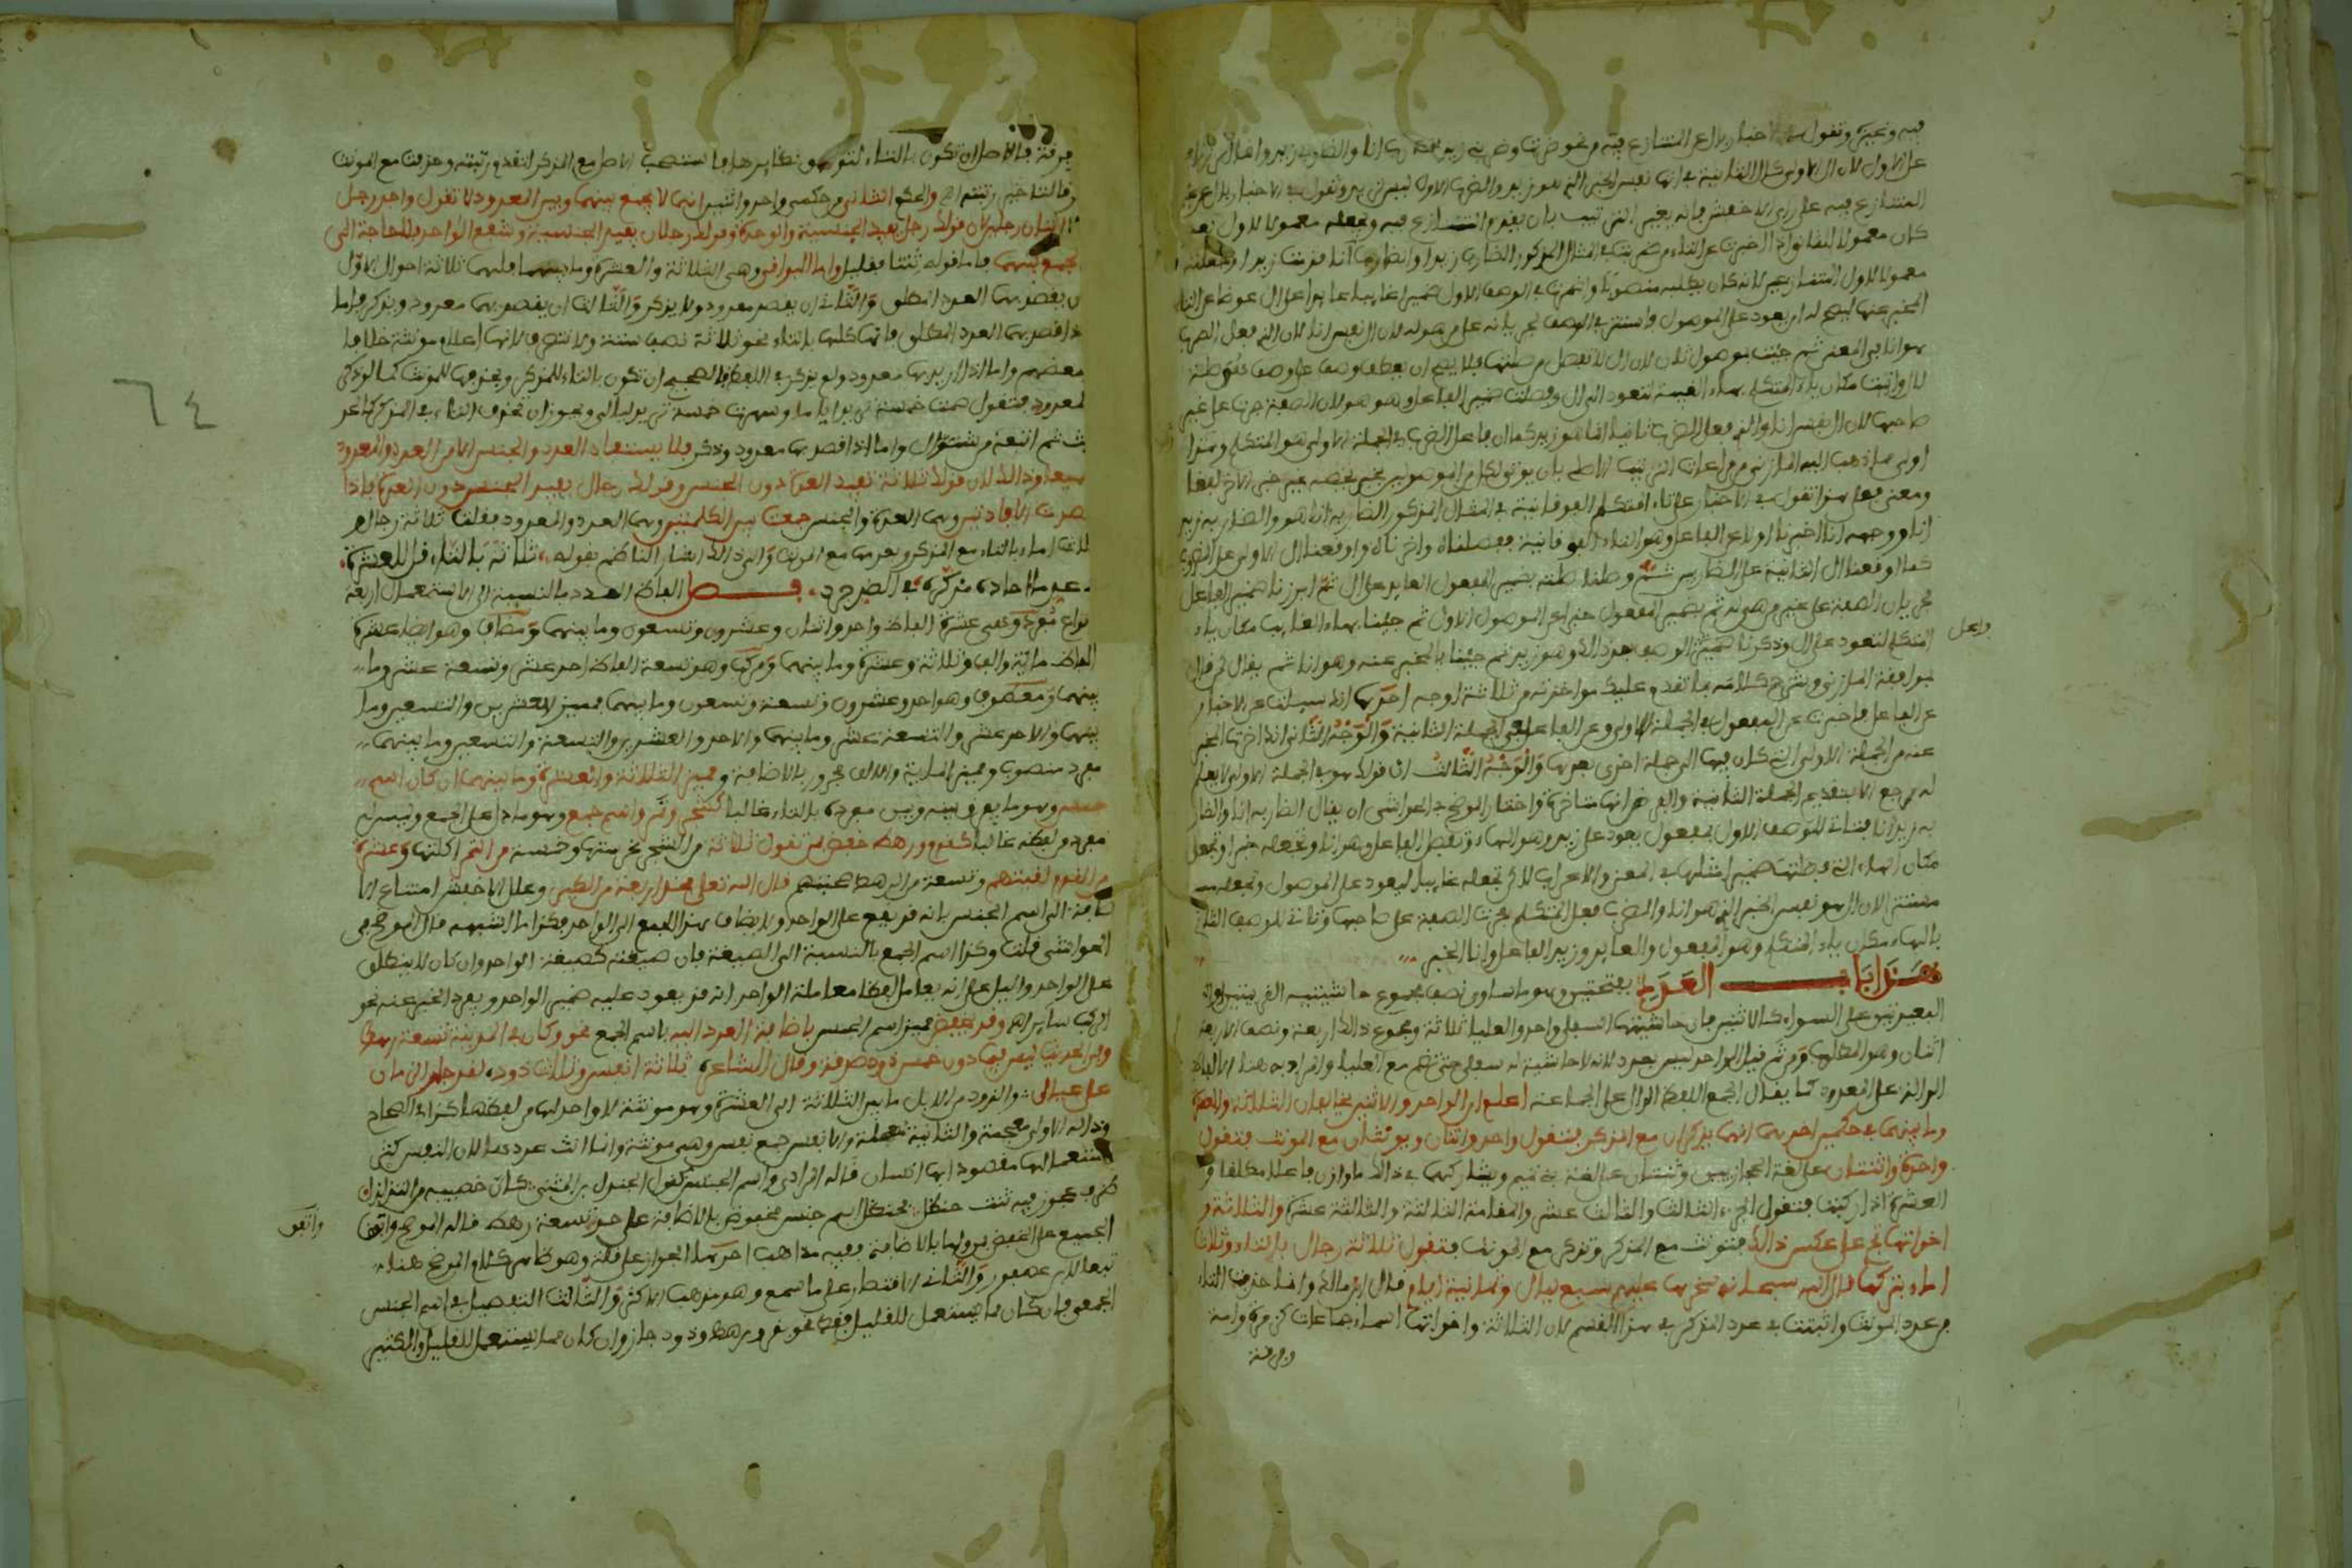 فيه وتخبر وتقول في الاخبار عن المتنازع فيه من نحو ضربت وضربني زيد
على الاول لان ال الاولى كال الثانية في انها نفس الخبر الذي هو زيد
المتنازع فيه على راي الاخفش فانه يغير الترتيب بان يقدم المتنازع فيه ويجعله معمولا للاول بعد
كان معمولا للثاني
معمولا لاول المتنازعين لانه كان يطلبه منصوبا واضمرت في الوصف الاول ضميرا غايبا عايدا على ال عوضا عن التاء
المخبر عنها ليصح له ان يعود على الموصول
هو انا في المعنى ثم جئت بموصول ثان لان ال لا تفصل من صلتها فلا يصح ان يعطف وصف على وصف
لال واتيت مكان ياء المتكلم بهاء الغيبة لتعود الى ال وفصلت ضمير الفاعل وهو هو لان الصفة جرت على غير
صاحبها لان ال نفس انا والذي فعل الضرب ثانيا انما هو زيد كما ان فاعل الضرب في الجملة الاولى هو المتكلم وهذا
اولى مما ذهب اليه المازني من مراعات الترتيب الاصلي بان يوتى لكل من الموصولين بخبر يخصه غير خبر الاخر لفظا
ومعنى فعلى هذا تقول في الاخبار عن تاء المتكلم الفوقانية في المثال المذكور الضاربه انا هو والضاربه زيد
انا ووجهه انا اخبرنا اولا عن الفاعل وهو التاء الفوقانية ففصلناه واخرناه واوقعنا ال الاولى على المضروب
كما اوقعنا ال الثانية على الضاربين ثم وصلنا صلته بضمير المفعول العايد على ال ثم ابرزنا ضمير الفاعل
لجريان الصفة على غير من هي له ثم بضمير المفعول خبرا عن الموصول الاول ثم جئنا بهاء الغايب مكان ياء
المتكلم لتعود على ال وذكرنا ضمير الوصف بعد ذالك وهو زيد ثم جئنا بالمخبر عنه وهو انا ثم يقال
وفاعل
بموافقة المازني ونشرح كلامه بما تقدم عليك مواخذته من ثلاثة اوجه احدها انك سيلت عن الاخبار
عن الفاعل فاخبرت عن المفعول في الجملة الاولى وعن الفاعل في الجملة الثانية والوجه الثاني انك اخرت المخبر
عنه من الجملة الاولى التي كان فيها الى جملة اخرى بعدها والوجه الثالث ان قولك هو في الجملة الاولى لا يعلم
له مرجع الا بتقديم الجملة الثانية والفرض انها متاخرة واختار الموضح في الحواشي ان يقال الضاربه انا والضار
به زيد انا فتاتي للوصف الاول بمفعول يعود على زيد وهو الهاء وتفصل الفاعل وهو انا وتجعله خبرا وتجعل
مكان الهاء التي وصلتها ضميرا مثلها في المعنى والاعراب للذي تجعله غايبا ليعود على الموصول وتجعله
مستترا لان ال هو نفس الخبر الذي هو انا والضرب فعل المتكلم فجرت الصفة على صاحبها وتاتي للوصف الثاني
بالهاء مكان ياء المتكلم وهو المفعول والعايد وزيد الفاعل وانا الخبر
هذا باب العدد بفتحتين وهو ما ساوى نصف مجموع حاشيتيه القريبتين او
البعيدتين على السواء كالاثنين فان حاشيتها السفلى واحد والعليا ثلاثة ومجموع ذالك اربعة ونصف الاربعة
اثنان وهو المطلوب ومن ثم قيل الواحد ليس بعدد لانه لا حاشية له سفلى حتى تضم مع العليا والمراد به هنا الالفاظ
الدالة على المعدود كما يقال الجمع اللفظ الدال على الجماعة اعلم ان الواحد والاثنين يخالفان الثلاثة والعشرة
وما بينهما في حكمين احدهما انهما يذكران مع المذكر فتقول واحد واثنان ويونثان مع المونث فتقول
واحدة واثنتان على لغة الحجازيين وثنتان على لغة بني تميم ويشاركهما في ذالك ما وازن فاعلا مطلقا و
العشرة اذا ركبت فتقول الجزء الثالث والثالث عشر والمقامة الثالثة والثالثة عشرة والثلاثة و
اخواتها تجري على عكس ذالك فتونث مع المذكر وتذكر مع المونث فتقول ثلاثة رجال بالتاء وثلاث
اماء بتركها قال الله سبحانه سخرها عليهم سبع ليال وثمانية ايام قال ابن مالك وانما حذفت التاء
من عدد المونث واثبتت في عدد المذكر في هذا القسم لان الثلاثة واخواتها اسماء جماعات كزمرة وامة
وفرقة
فرقة فالاصل ان تكون بالتاء لتوافق نظايرها فاستصحب الاصل مع المذكر لتقدم رتبته وحذفت مع المونث
فرقا لتاخر رتبته اه والحكم الثاني من حكمي واحد واثنين انهما لا يجمع بينهما وبين المعدود لا تقول واحد رجل
ولا اثنان رجلين لان قولك رجل يفيد الجنسية والوحدة وقولك رجلان يفيد الجنسية وشفع الواحد فلا حاجة الى
الجمع بينهما فاما قوله ثنتا حنظل فقليل واما البواقي وهي الثلاثة والعشرة وما بينهما فلها ثلاثة احوال الاول
ان يقصد بها العدد المطلق والثاني ان يقصد معدود ولا يذكر والثالث ان يقصد بها معدود ويذكر فاما
اذا قصد بها العدد المطلق فانها كلها بالتاء نحو ثلاثة نصف ستة ولا تنصرف لانها اعلام مونثة خلافا
لبعضهم واما اذا اريد بها معدود ولم يذكر في اللفظ فالفصيح ان تكون بالتاء للمذكر وبحذفها للمونث كما لو ذكر
المعدود فتقول صمت خمسة تريد اياما وسهرت خمسا تريد ليالي ويجوز ان تحذف التاء في المذكر كالحد
يث ثم اتبعه من شوال واما اذا قصد بها معدود وذكر فلا يستفاد العدد والجنس الا من العدد والمعدود
جميعا وذالك لان قولك ثلاثة تفيد العدة دون الجنس وقولك رجال يفيد الجنس دون العدة فاذا
قصدت الافادتين وهما العدة والجنس جمعت بين الكلمتين وهما العدد والمعدود فقلت ثلاثة رجال و
ثلاث اماء بالتاء مع المذكر وبعدمها مع المونث والى ذالك اشار الناظم بقوله ثلاثة بالتاء قل للعشرة
في عد ما احاده مذكرة في الضد جرد فصل الفاظ العدد بالنسبة الى الاستعمال اربعة
انواع مفرد وهي عشرة الفاظ واحد واثنان وعشرون وتسعون وما بينهما ومضاف وهو ايضا عشرة
الفاظ ماية والف وثلاثة وعشرة وما بينهما ومركب وهو تسعة الفاظ احد عشر وتسعة عشر وما
بينهما ومعطوف وهو احد وعشرون وتسعة وتسعون وما بينهما فمميز العشرين والتسعين وما
بينهما والاحد عشر والتسعة عشر وما بينهما والاحد والعشرين والتسعة والتسعين وما بينهما
مفرد منصوب ومميز الماية والالف مجرور بالاضافة ومميز الثلاثة والعشرة وما بينهما ان كان اسم
جنس وهو ما يفرق بينه وبين مفرده بالتاء غالبا كشجر وتمر واسم جمع وهو ما دل على الجمع وليس له
مفرد من لفظه غالبا كقوم ورهط خفض بمن تقول ثلاثة من الشجر غرستها وخمسة من التمر اكلتها وعشرة
من القوم لقيتهم وتسعة من الرهط صحبتهم قال الله تعلى فخذ اربعة من الطير وعلل الاخفش امتناع الا
ضافة الى اسم الجنس بانه قد يقع على الواحد ولا يضاف هذا الجمع الى الواحد فكذا ما اشبهه قال الموضح في
الحواشي قلت وكذا اسم الجمع بالنسبة الى الصيغة فان صيغته كصيغة الواحد وان كان لا ينطلق
على الواحد والدليل على انه يعامل لفظا معاملة الواحد انه قد يعود عليه ضمير الواحد ويفرد الخبر عنه نحو
الركب ساير اه وقد يخفض مميز اسم الجنس باضافة العدد اليه باسم الجمع نحو وكان في المدينة تسعة رهط
وفي الحديث ليس فيما دون خمس ذود صدقة وقال الشاعر ثلاثة انفس وثلاث ذود لقد جار الزمان
على عيالي والذود من الابل ما بين الثلاثة الى العشرة وهو مونثة لا واحد لها من لفظها كذا في الصحاح
وذاله الاولى معجمة والثانية مهملة والانفس جمع نفس وهي مونثة وانما انث عددها لان النفس كثر
استعمالها مقصودا بها انسان قاله المرادي واسم الجنس كقول الجندل بن المثنى كان خصييه من التدلدل
ظرف عجوز فيه ثنتا حنظل فحنظل اسم جنس مخفوض بالاضافة على حد تسعة رهط قاله الموضح واتفق
واتفق
الجميع على الخفض بمن واما بالاضافة ففيه مذاهب احدها الجواز على قلة وهو ظاهر كلام الموضح هنا
تبعا لابن عصفور والثاني الاقتصار على ما سمع وهو مذهب الاكثر والثالث التفصيل في اسم الجنس
الجمعي فان كان مما يستعمل للقليل فقط نحو نفر ورهط وذود جاز وان كان مما يستعمل للقليل والكثير
٦٤